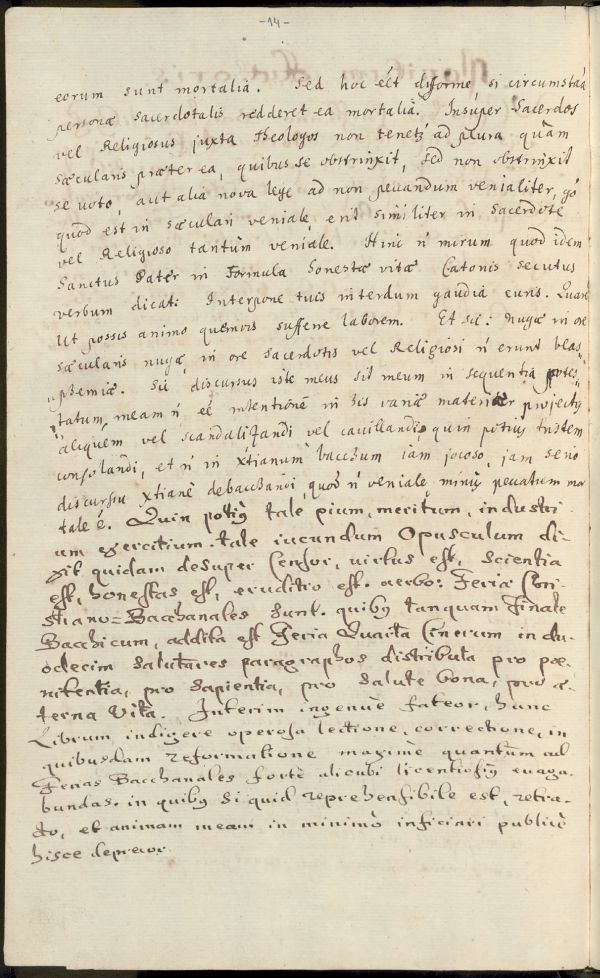 -14-
eorum sunt mortalia. Sed hoc est difforme, si circumstãa
personæ sacerdotalis redderet ea mortalia. Insuper Sacerdos
vel Religiosus juxta Theologos non tenetʒ ad plura quàm
sæcularis præter ea, quibus se obstrinxit, sed non obstrinxit
se voto, aut alia nova lege ad non peccandum venialiter, gõ
quod est in sæculari veniale, erit similiter in Sacerdote
vel Religioso tantùm veniale. Hinc ñ mirum quod idem
Sanctus Pater in Formula honestæ vitæ Catonis secutus
verbum dicat: Interpone tuis interdum gaudia curis.
Ut possis animo quemvis suffere laborem. Et sic: nugæ in ore
sæcularis nugæ, in ore sacerdotis vel Religiosi ñ erunt blas-
"phemiæ. Sic discursus iste meus sit meum in sequentia
"tatum, meam ñ eẽ intentionẽ in his variæ materiæ projectis
aliquem vel scandalizandi vel cavillandi, quin potiùs tristem
consolandi, et ñ in xtianum bacchum iam jocoso, jam serio
discursu xtianè debacchandi, quod ñ veniale, minùs peccatum mor
tale ẽ. Quin potiùs tale pium, meritum, industri-
um exercitium, tale iucundum Opusculum di-
xit quidam desuper Censor, virtus est, scientia
est, honestas est, eruditio est. verbo: Feriæ Chri-
stiano=Bacchanales sunt. quibus tanquam Finale
Bacchicum, addita est Feria Quarta Cinerum in du-
odecim salutares paragraphos distributa pro pœ-
nitentia, pro sapientia, pro salute bona, pro æ-
terna Vita. Interim ingenuè fateor, hunc
Librum indigere operosa lectione, correctione, in
quibusdam reformatione maximè quantùm ad
Ferias Bacchanales fortè alicubi licentiosiùs evaga-
bundas. in quibus si quid reprehensibile est, retra-
cto, et animam meam in minimò inficiari publicè
hisce deprecor.